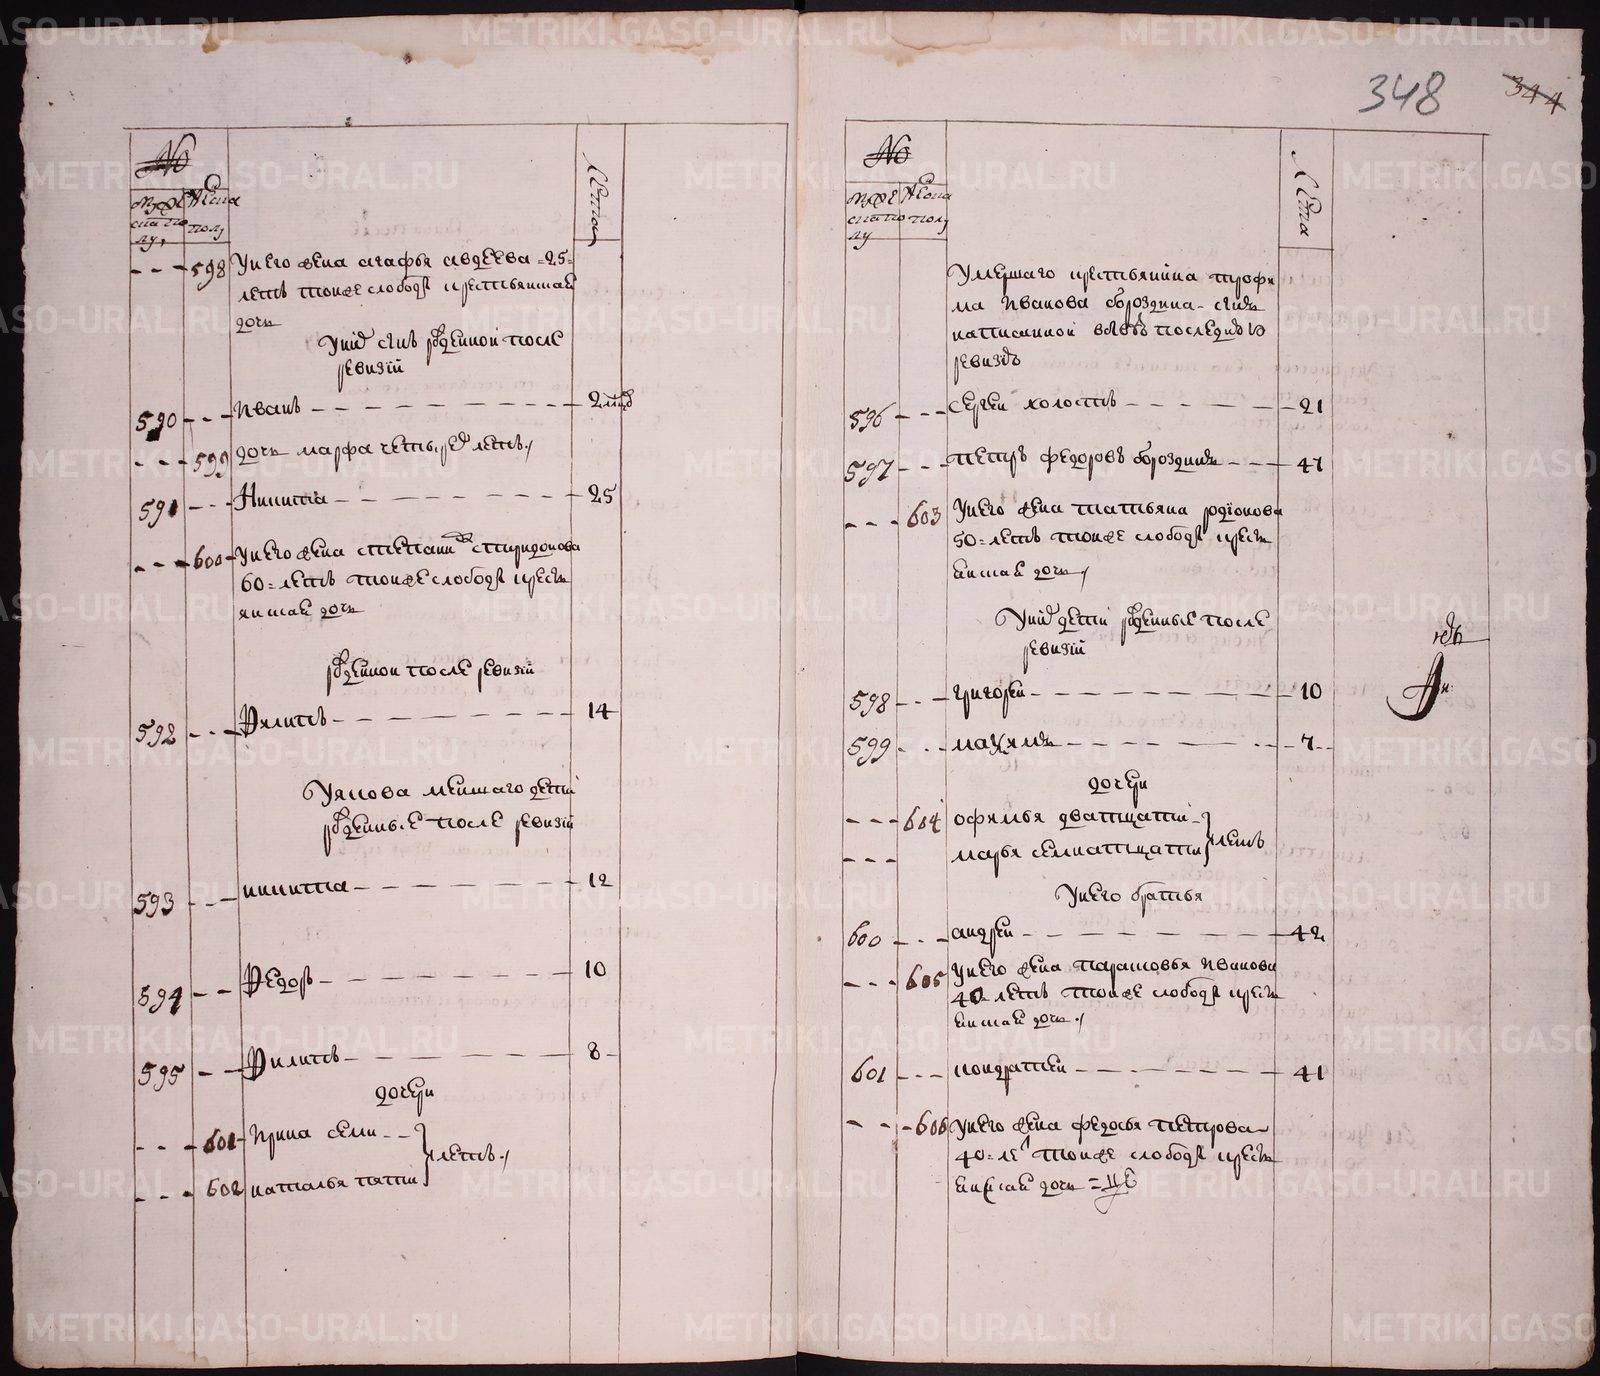 348
344
№
мужеска полу
женска полу
Лета
598 У него жена агафья авдеева 25
летъ тоиже слободы крестьянская
дочь
У нихъ сынъ рожденной после
ревизiи
590 Иванъ 2
599 дочь марфа четырехъ летъ
591 Никита 25
600 У него жена степанида спиридонова
60 летъ тоиже слободы кресть
янская дочь
рожденнои после ревизiи
592 Филипъ 14
У якова меншаго дети
рожденные после ревизiи
593 никита 12
594 Федоръ 10
595 Филипъ 8
дочери
601 Ирина семи
602 наталья пяти
летъ
№
мужеска полу
женска полу
Лета
Умершаго крестьянина трофи
ма Иванова бороздина сынъ
написанной в последнюю
ревизiю
596 Сергеи холостъ 21
597 петръ федоровъ бороздинъ 47
603 У него жена татьяна родiонова
50 летъ тоиже слободы кресть
янская дочь
У нихъ дети рожденные после
ревизiи
598 григореи 10
599 макимъ 7
дочери
604 офимья дватцати
марья семнатцати
летъ
У него братья
600 андреи 42
605 У него жена парасковья Иванова
40 летъ тоиже слободы кресть
янская дочь
601 кондратеи 41
606 У него жена федосья петрова
40 ле тоиже слободы кресть
янская дочь